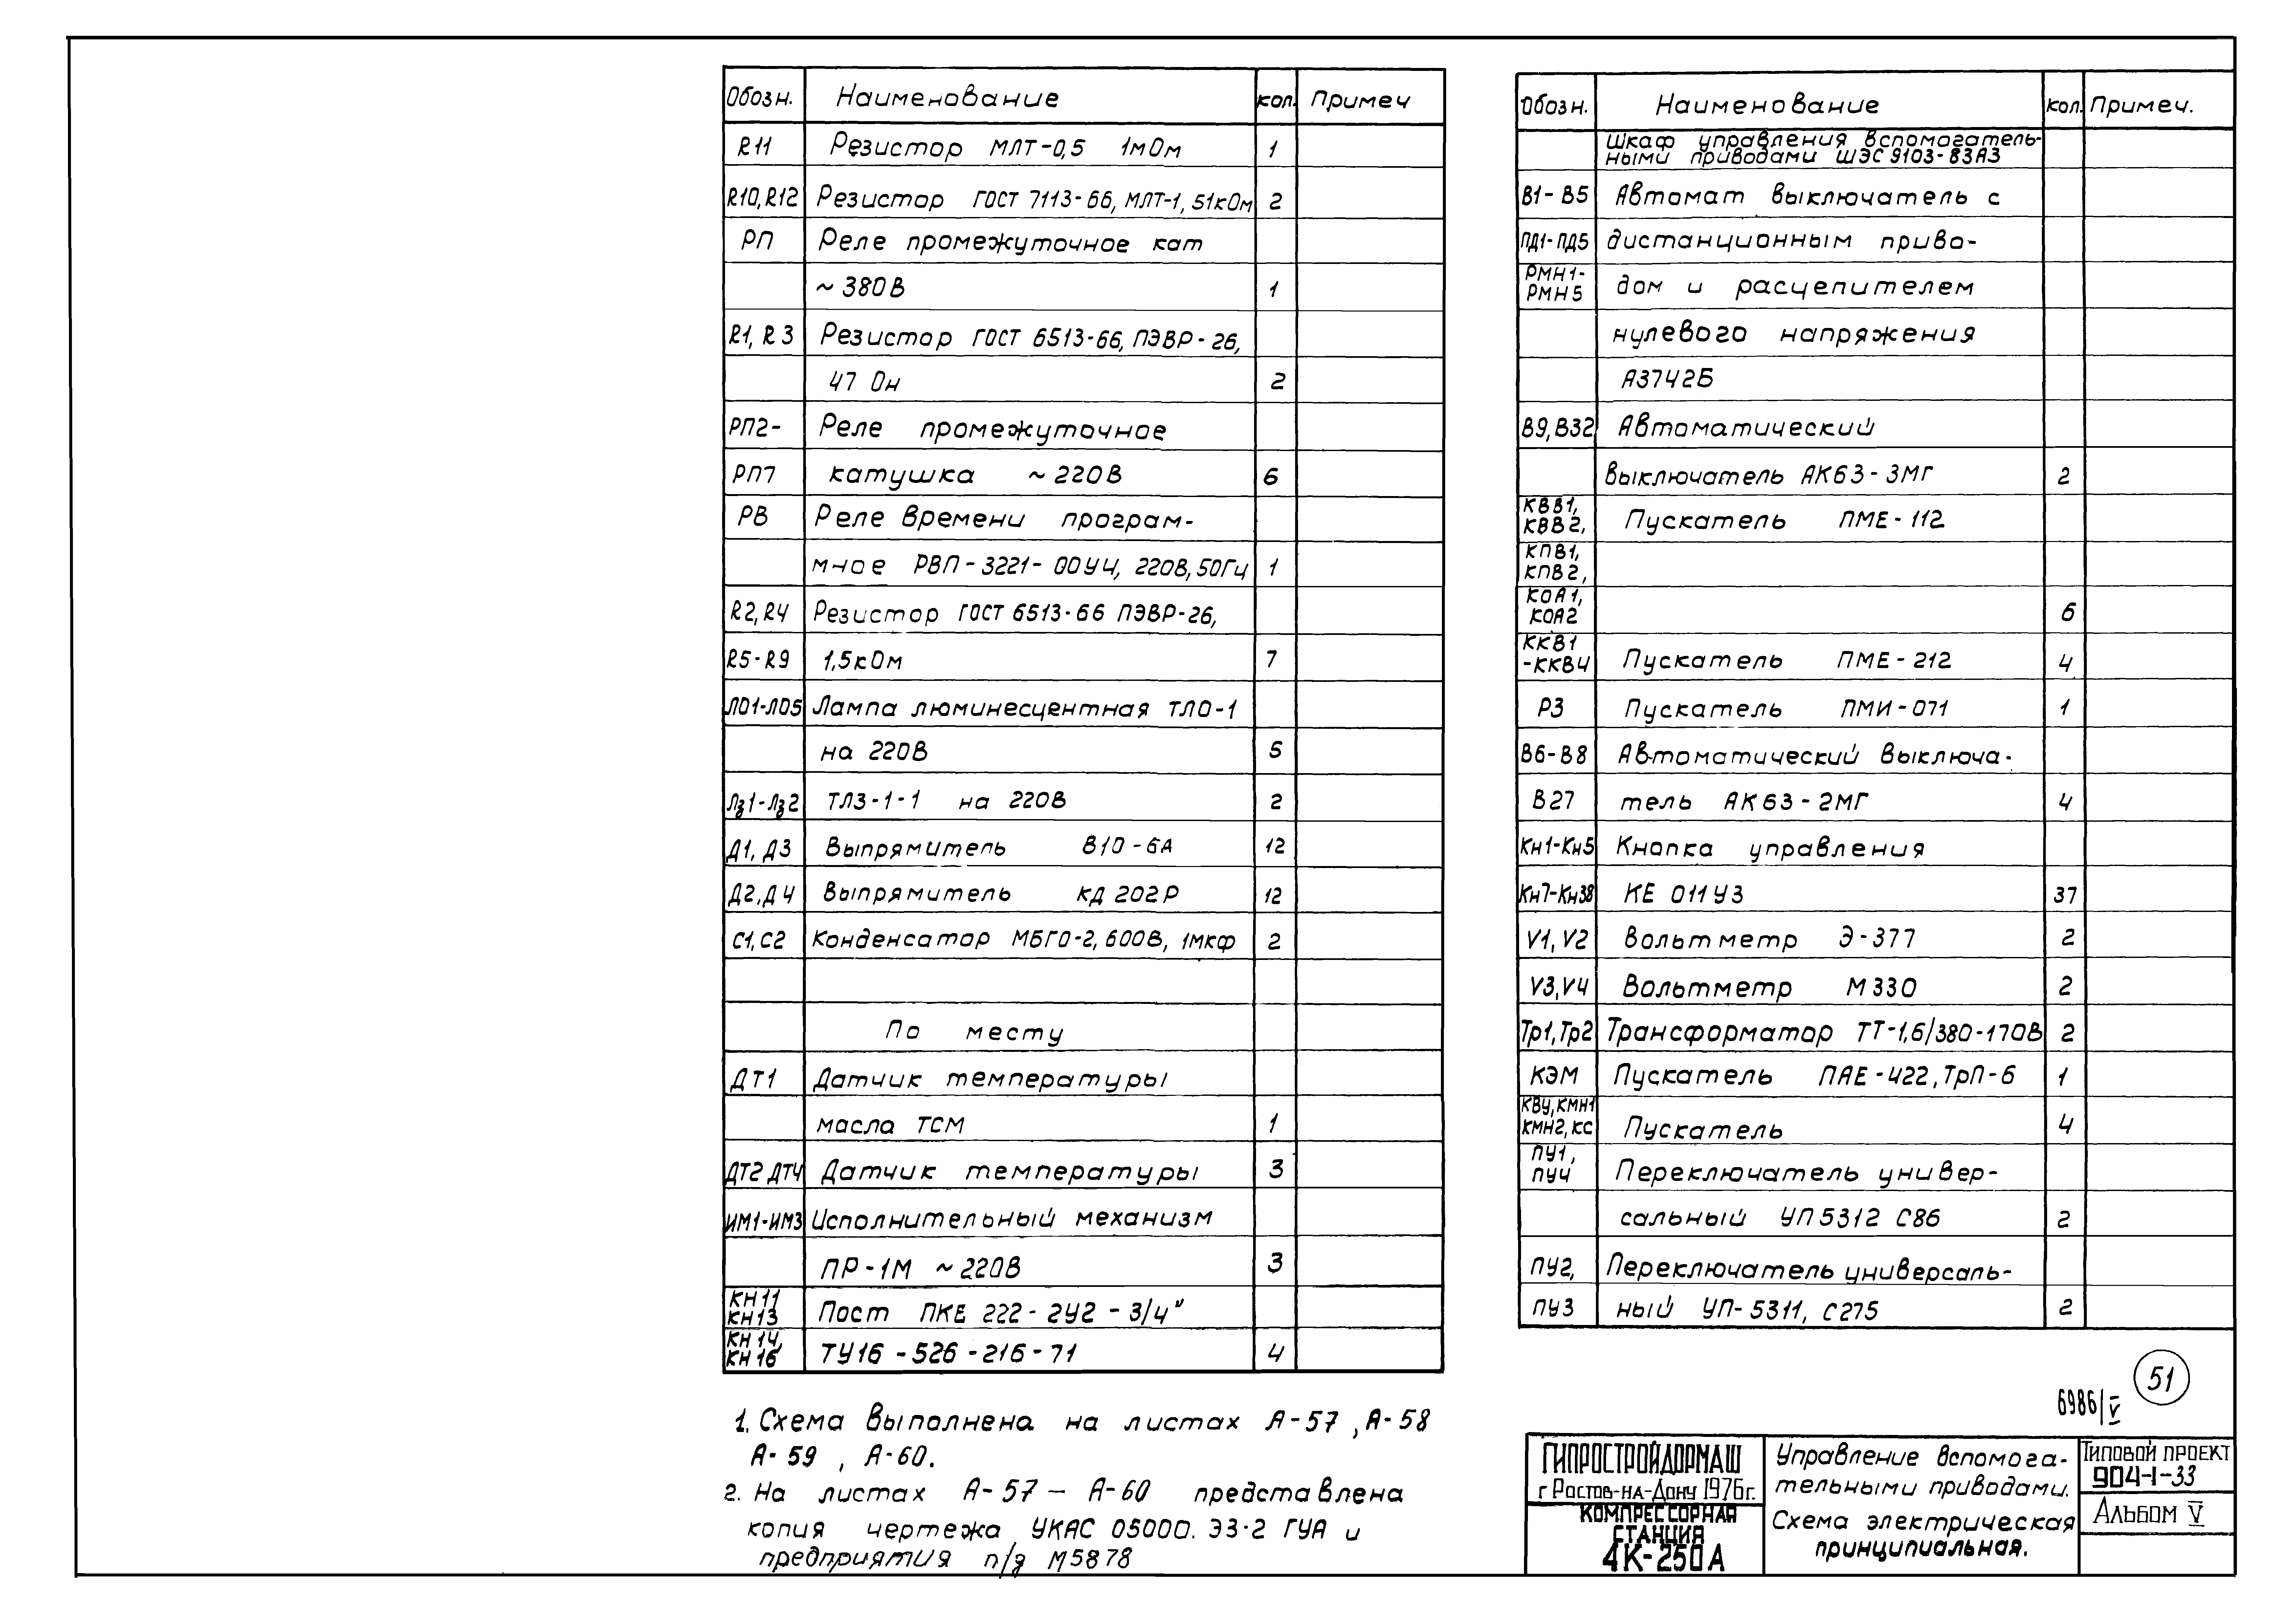 Обозн. Наименование кол. Примеч
R11 Резистор МЛТ-0,5 1мОм 1
R10, R12 Резистор ГОСТ 7113-66, МЛТ-1, 51кОм 2
РП Реле промежуточное кат
~ 380В 1
R1, R3 Резистор ГОСТ 6513-66, ПЭВР-26,
47 Он 2
РП2- Реле промежуточное
РП7 катушка ~ 220В 6
РВ Реле времени програм-
мное РВП-3221-00У4, 220В, 50Гц 1
R2, R4 Резистор ГОСТ 6513-66 ПЭВР-26,
R5-R9 1,5кОм 7
ЛО1-ЛО5 Лампа люминесцентная ТЛО-1
на 220В 5
Лз1-Лз2 ТЛЗ-1-1 на 220В 2
Д1, Д3 Выпрямитель В10-6А 12
Д2, Д4 Выпрямитель КД 202Р 12
С1, С2 Конденсатор МБГО-2, 600В, 1мкф 2
По месту
ДТ1 Датчик температуры
масла ТСМ 1
ДТ2 ДТ4 Датчик температуры 3
ИМ1-ИМ3 Исполнительный механизм
ПР-1М ~220В 3
КН11
КН13 Пост ПКЕ 222-2У2-3/4"
КН14,
КН16 ТУ16-526-216-71 4
1. Схема выполнена на листах А-57, А-58
А-59, А-60.
2. На листах А-57 — А-60 представлена
копия чертежа УКАС 05000. Э3-2 ГУА и
предприятия п/я М5878
Обозн. Наименование кол. Примеч.
Шкаф управления вспомогатель-
ными приводами ШЭС 9103-83А3
В1-В5 Автомат выключатель с
ПД1-ПД5 дистанционным приво-
РМН1-
РМН5 дом и расцепителем
нулевого напряжения
А3742Б
В9, В32 Автоматический
выключатель АК63-3МГ 2
КВВ1,
КВВ2, Пускатель ПМЕ-112
КПВ1,
КПВ2,
КОА1,
КОА2 6
ККВ1
-ККВ4 Пускатель ПМЕ-212 4
РЗ Пускатель ПМИ-071 1
В6-В8 Автоматический выключа-
В27 тель АК63-2МГ 4
Кн1-Кн5 Кнопка управления
Кн7-Кн38 КЕ 011У3 37
V1, V2 Вольтметр Э-377 2
V3, V4 Вольтметр М330 2
Тр1, Тр2 Трансформатор ТТ-1,6/380-170В 2
КЭМ Пускатель ПАЕ-422, ТрП-6 1
КВУ, КМН1
КМН2, КС Пускатель 4
ПУ1,
ПУ4 Переключатель универ-
сальный УП5312 С86 2
ПУ2, Переключатель универсаль-
ПУ3 ный УП-5311, С275 2
51
6986/V
ГИПРОСТРОЙДОРМАШ
г Ростов-на-Дону 1976г.
КОМПРЕССОРНАЯ
СТАНЦИЯ
4К-250А
Управление вспомога-
тельными приводами.
Схема электрическая
принципиальная.
Типовой проект
904-1-33
Альбом V